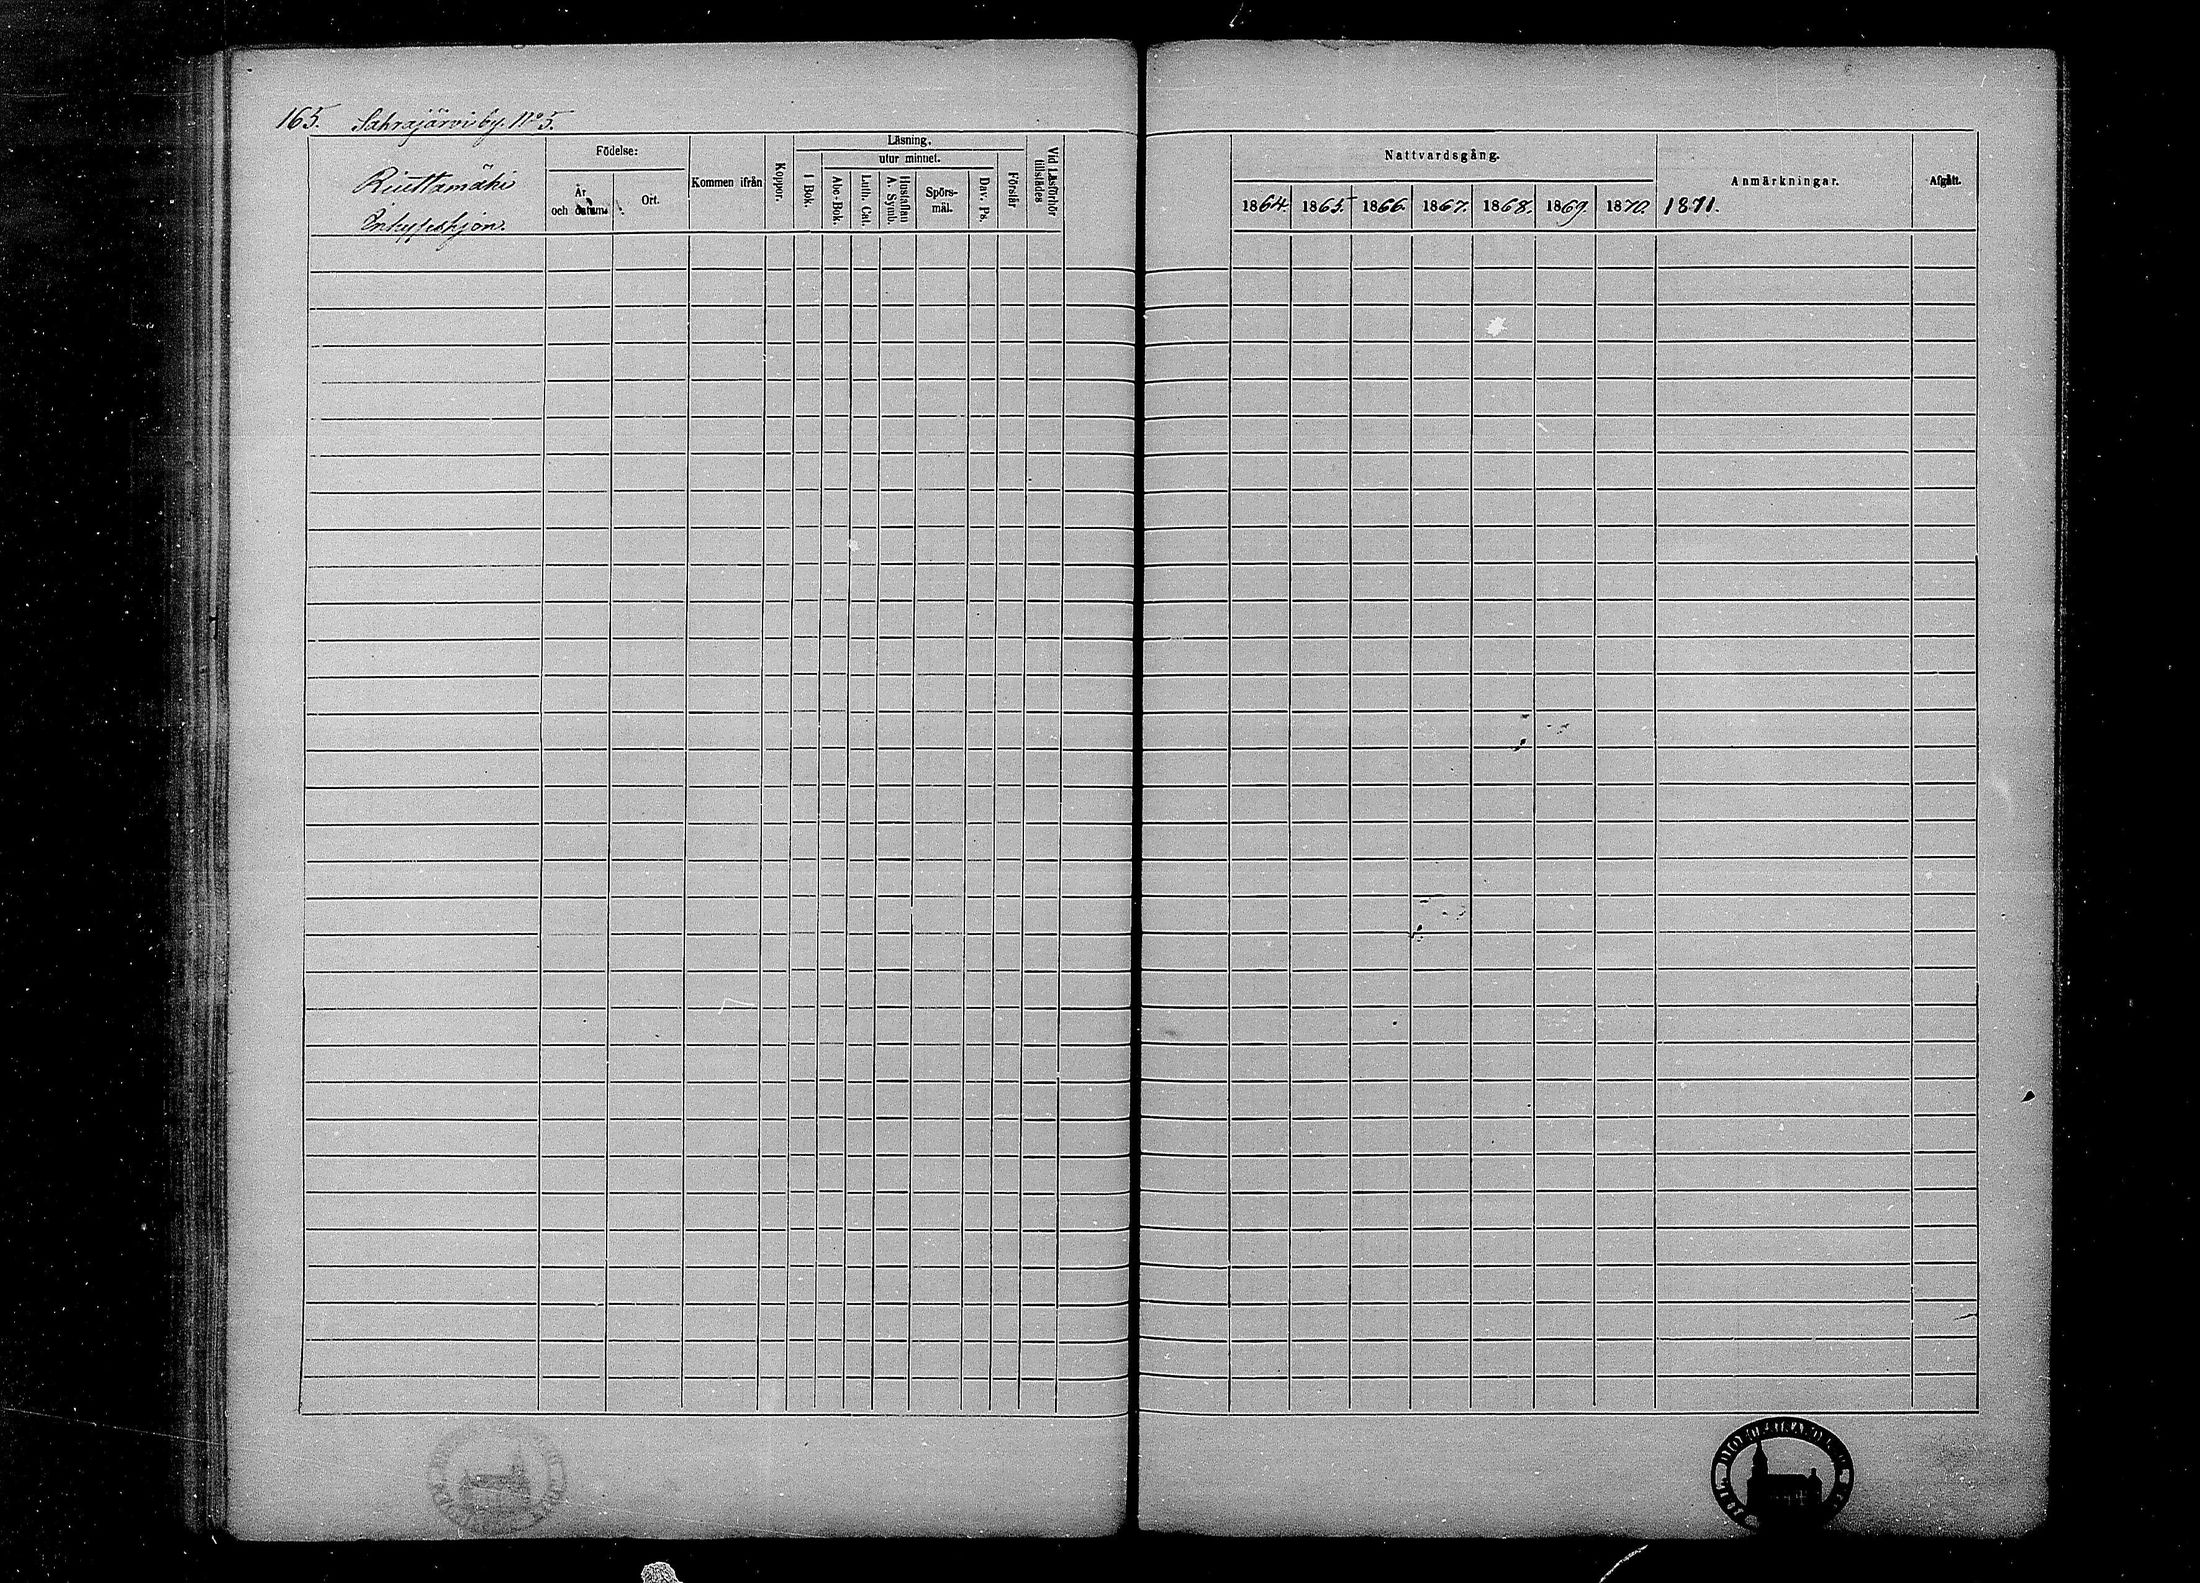 165. Sahrajärvi by. No 5.
Riuttamäki
Födelse:
År och datum.
Ort.
Kommen ifrån
Koppor.
Läsning.
I Bok.
utur minnet.
Abc-Bok.
Luth. Cat.
Hustaflan A. Symb.
Spörsmål.
Dav. Ps.
Förstår
Vid Läsförhör tillstädes
Nattvardsgång.
1864. 1865. 1866. 1867. 1868. 1869. 1870. 1871.
Anmärkningar.
Afgått.